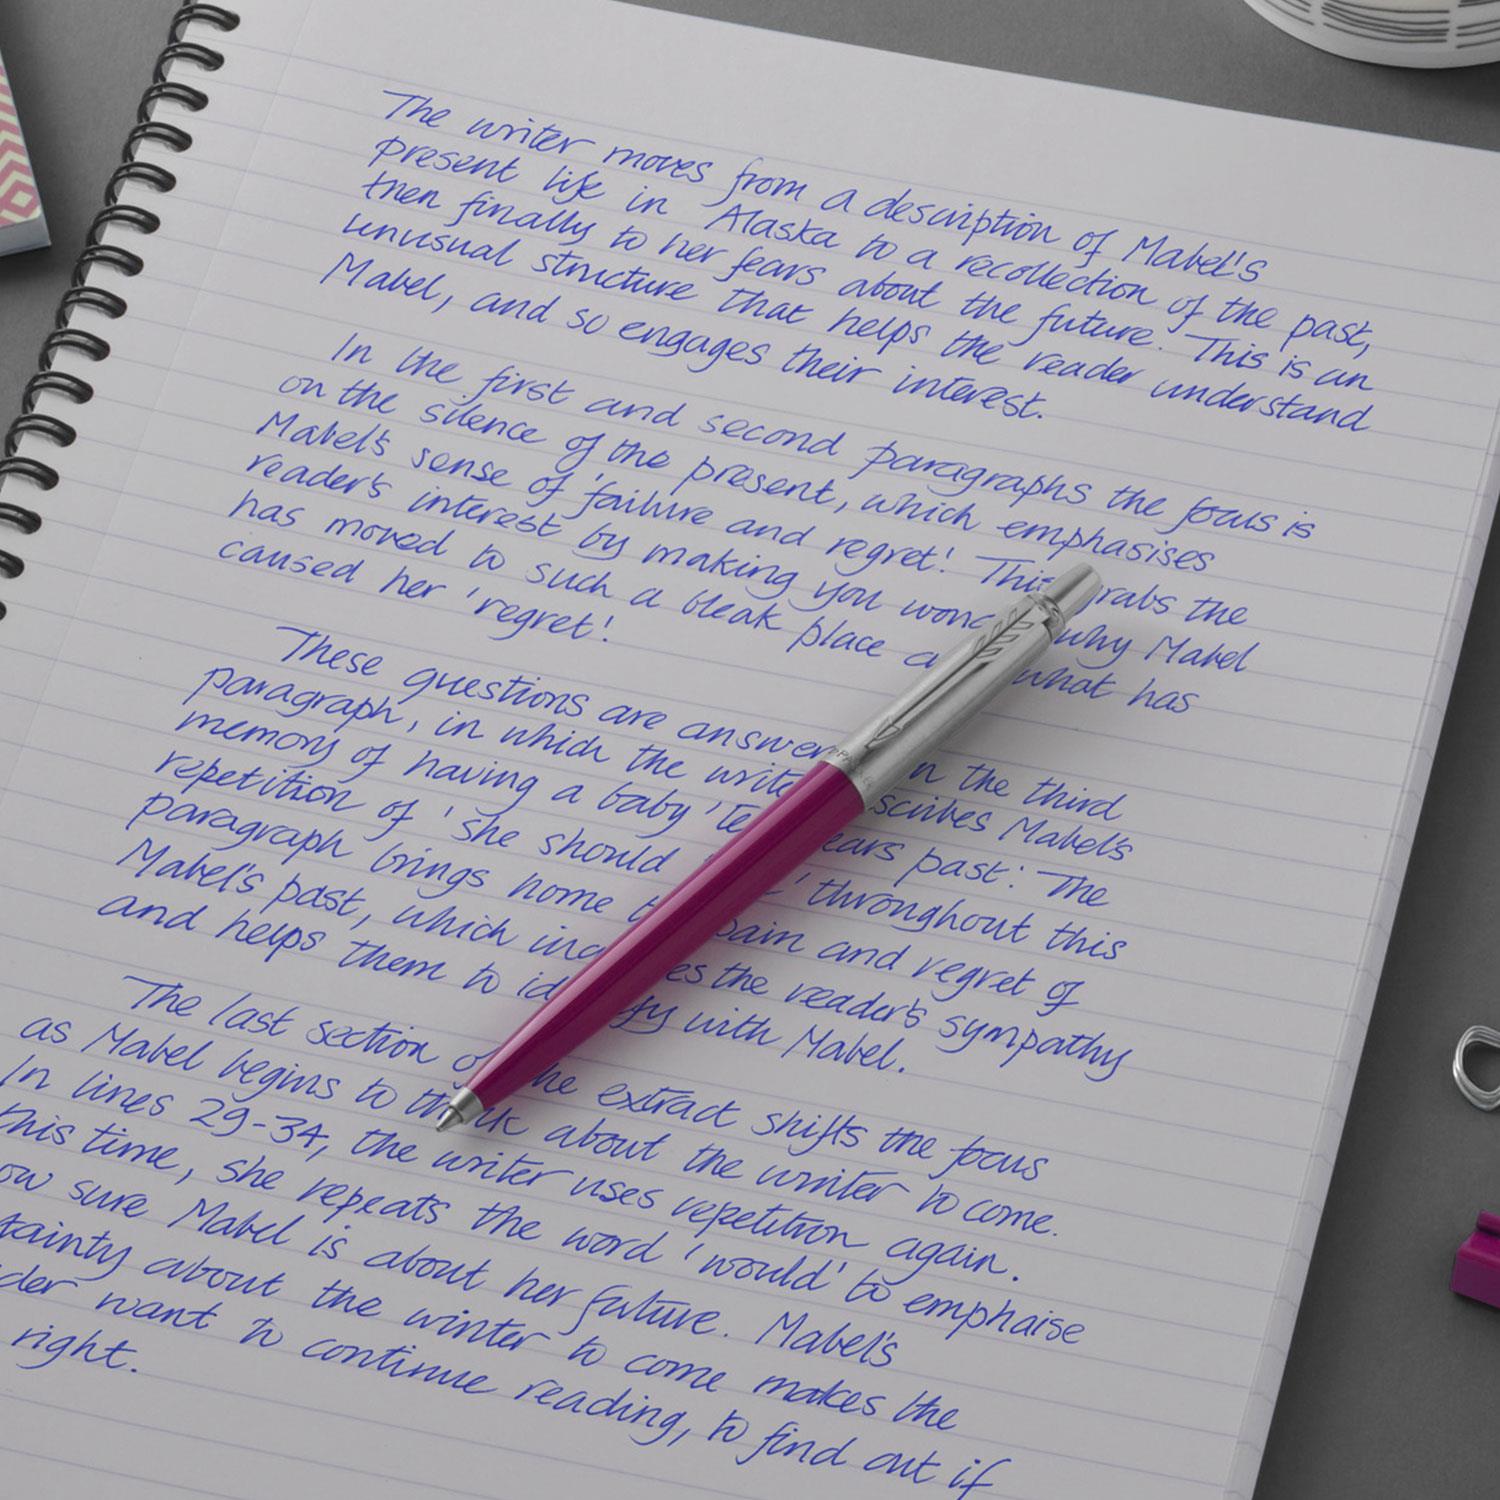 The writer moves from a description of Mabel's
present life in Alaska to a recollection of the past,
then finally to her fears about the future. This is an
unusual structure that helps the reader understand
Mabel, and so engages their interest.
In the first and second paragraphs the focus is
on the silence of the present, which emphasises
Mabel's sense of 'failure and regret'. This grabs the
reader's interest by making you why Mabel
has moved to such a bleak place what has
caused her 'regret'.
These questions are answer n the third
paragraph, in which the write scribes Mabel's
memory of having a baby 'te ears past'. The
repetition of 'she should ' throughout this
paragraph brings home pain and regret of
Mabel's past, which inc es the reader's sympathy
and helps them to id fy with Mabel.
The last section o he extract shifts the focus
as Mabel begins to think about the winter to come.
In lines 29-34, the writer uses repetition again.
this time, she repeats the word 'would' to emphaise
ow sure Mabel is about her future. Mabel's
tainty about the winter to come makes the
der want to continue reading, to find out if
right.
PARKER